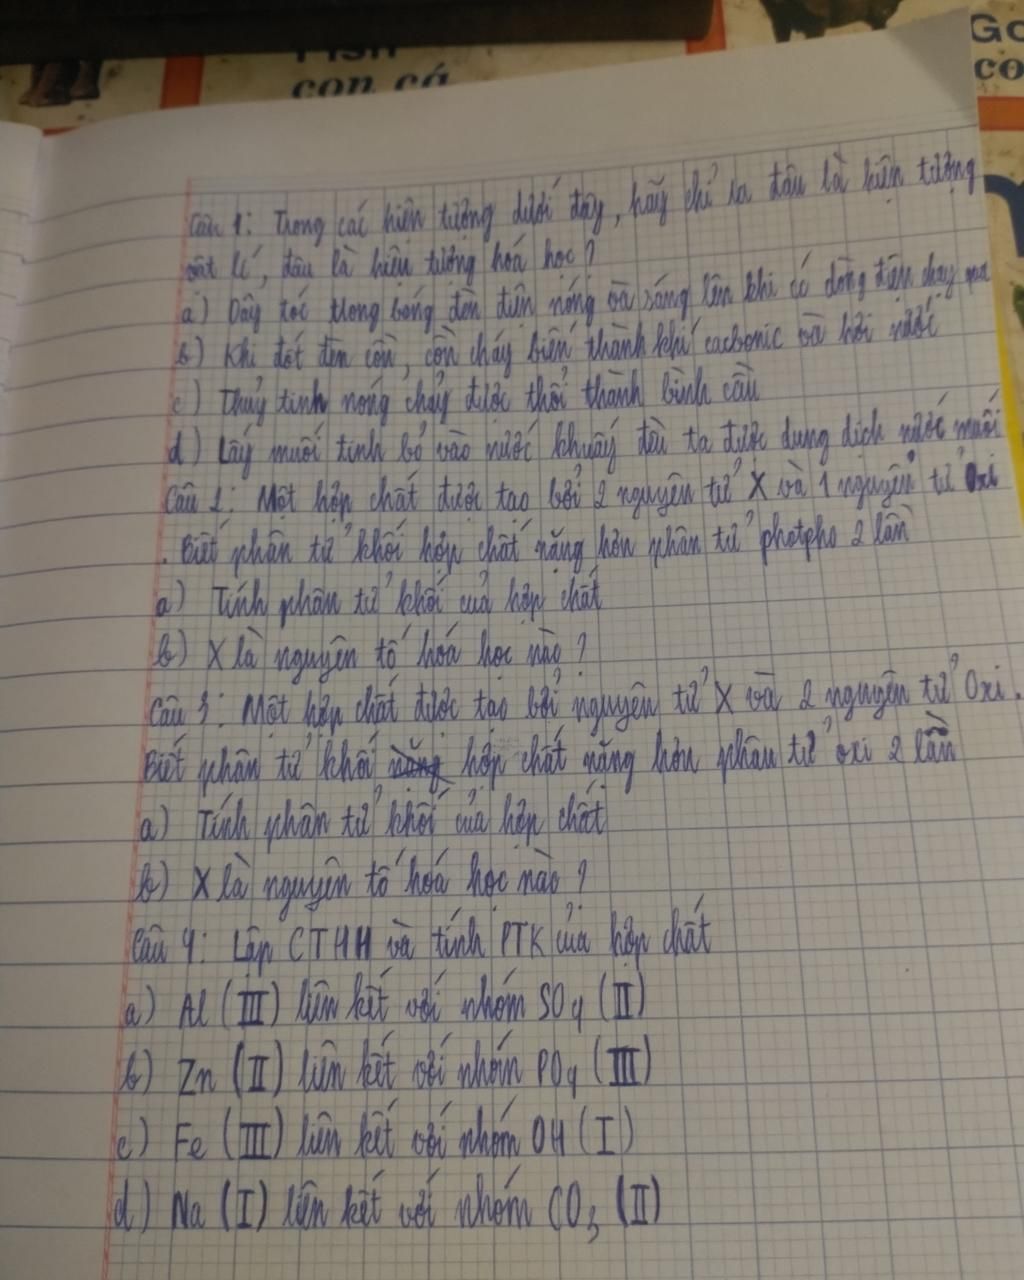 Fish
con cá
Go
co
Câu 1: Trong các hiện tượng dưới đây, hãy chỉ ra đâu là hiện tượng
vật lí, đâu là hiện tượng hoá học?
a) Dây tóc trong bóng đèn điện nóng và sáng lên khi có dòng điện chạy qua
b) Khi đốt đèn cồn, cồn cháy biến thành khí cacbonic và hơi nước
c) Thuỷ tinh nóng chảy được thổi thành bình cầu
d) Lấy muối tinh bỏ vào nước khuấy đều ta được dung dịch nước muối
Câu 2: Một hợp chất được tạo bởi 2 nguyên tử X và 1 nguyên tử Oxi
. Biết phân tử khối hợp chất nặng hơn phân tử photpho 2 lần
a) Tính phân tử khối của hợp chất
b) X là nguyên tố hoá học nào?
Câu 3: Một hợp chất được tạo bởi nguyên tử X và 2 nguyên tử Oxi.
Biết phân tử khối hợp chất nặng hơn phân tử oxi 2 lần
a) Tính phân tử khối của hợp chất
b) X là nguyên tố hoá học nào?
Câu 4: Lập CTHH và tính PTK của hợp chất
a) Al (III) liên kết với nhóm SO4 (II)
b) Zn (II) liên kết với nhóm PO4 (III)
c) Fe (III) liên kết với nhóm OH (I)
d) Na (I) liên kết với nhóm CO3 (II)